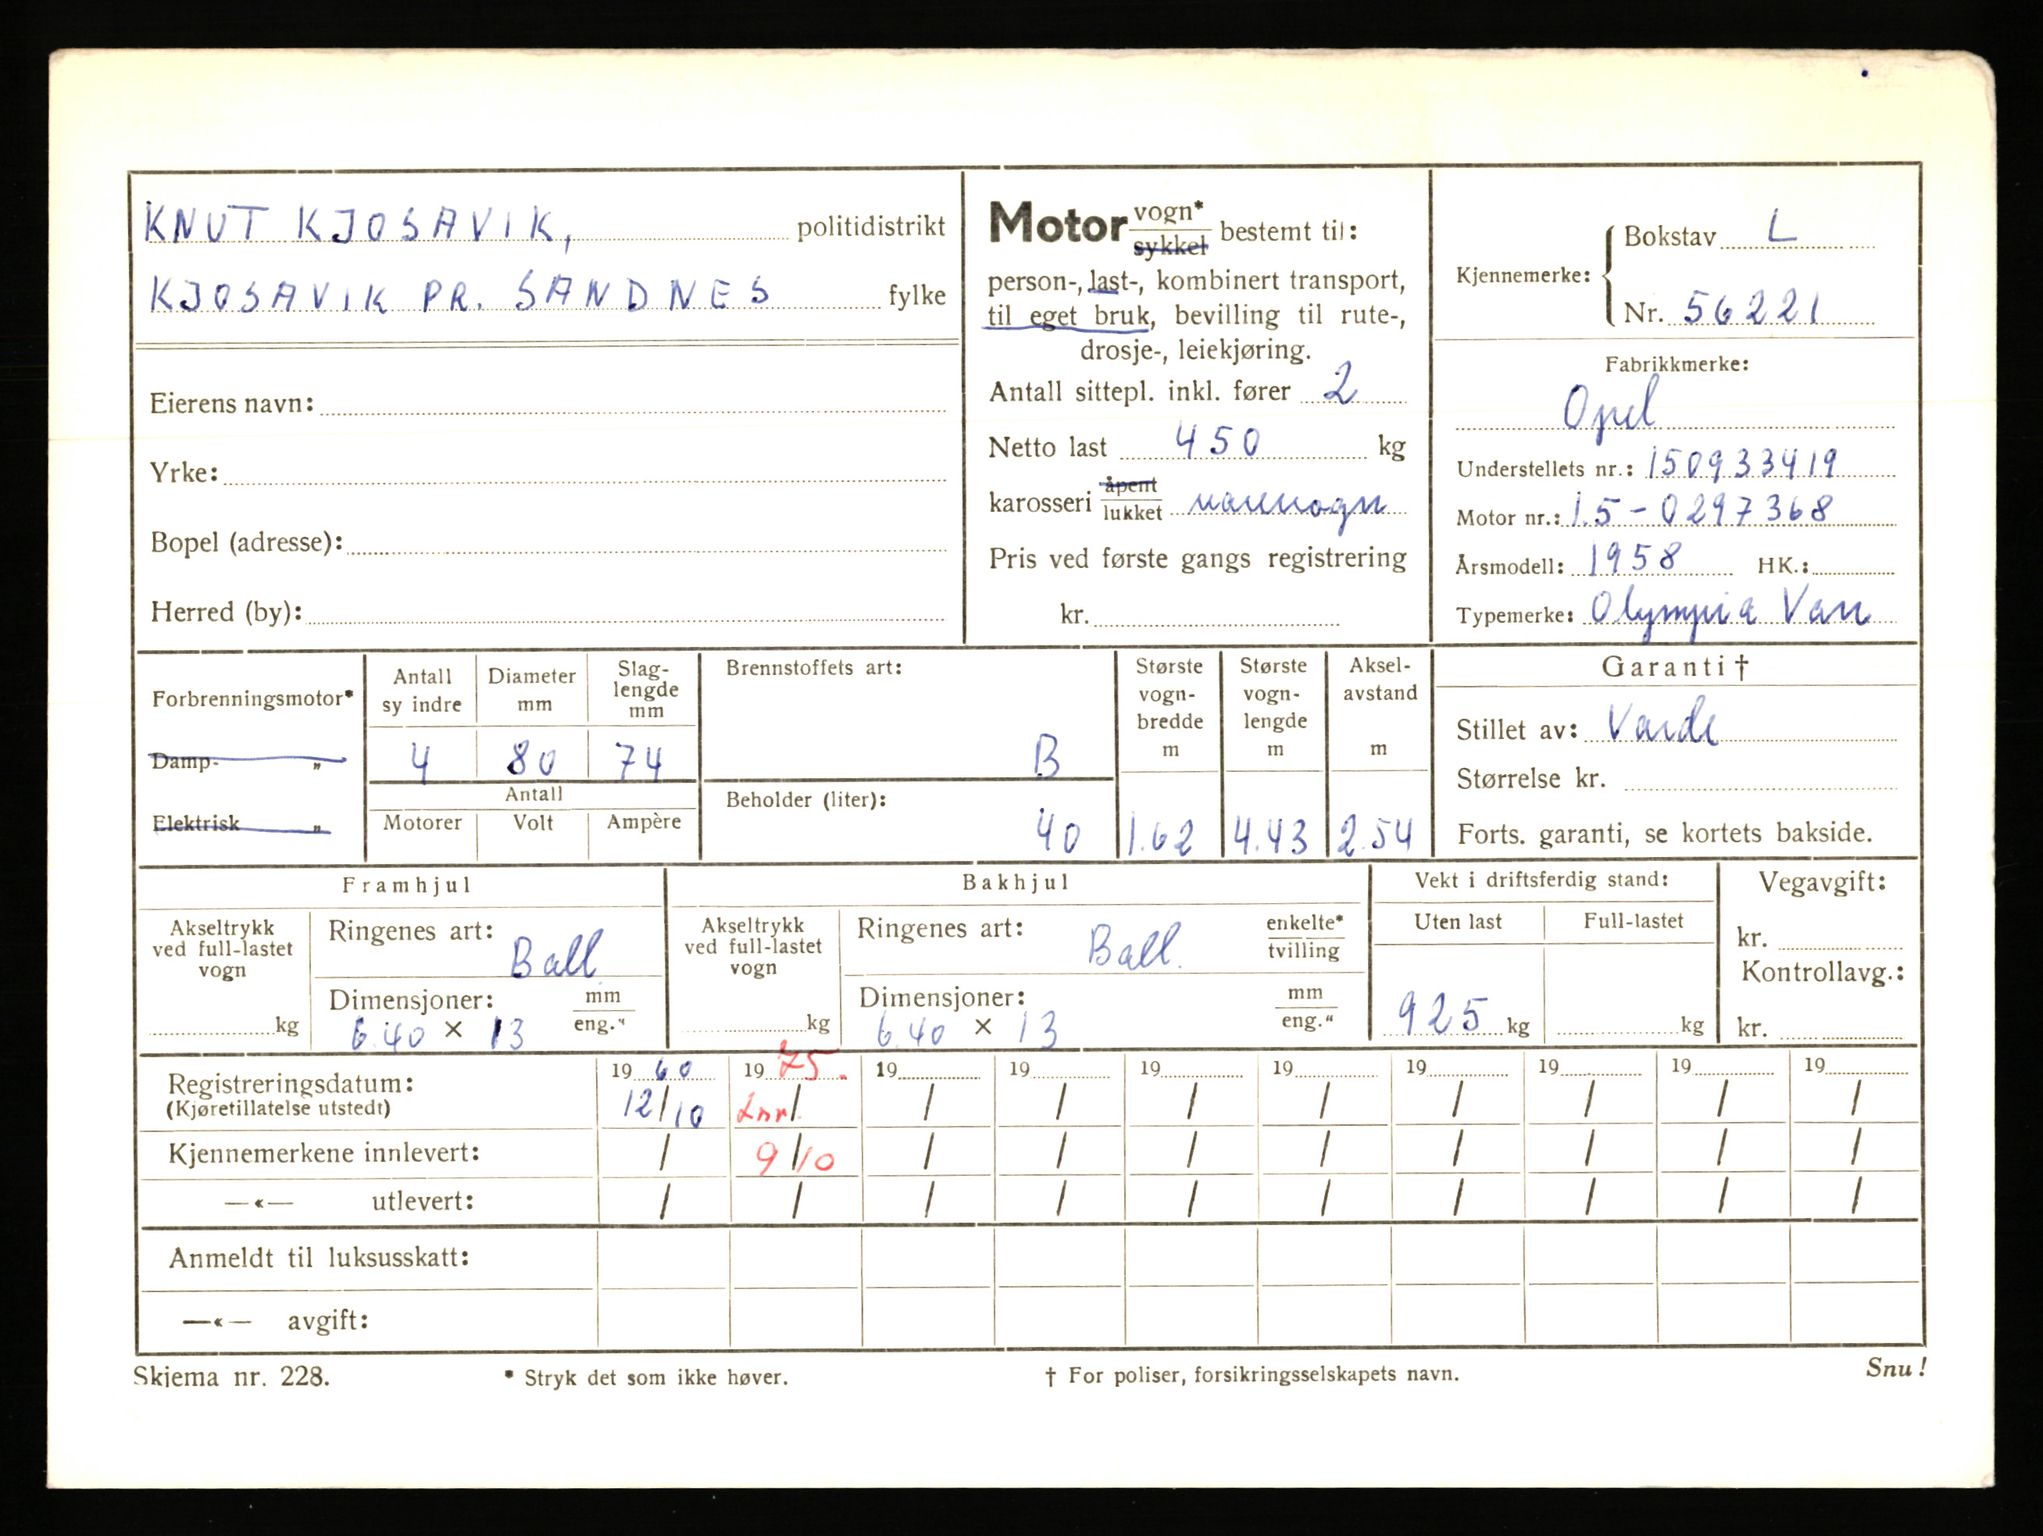 KNUT KJOSAVIK, politidistrikt
KJOSAVIK PR. SANDNES fylke
Eierens navn:
Yrke:
Bopel (adresse):
Herred (by):
Motor vogn* sykkel bestemt til:
person-, last-, kombinert transport,
til eget bruk, bevilling til rute-,
drosje-, leiekjøring.
Antall sittepl. inkl. fører 2
Netto last 450 kg
karosseri åpent lukket varevogn
Pris ved første gangs registrering
kr.
Kjennemerke: Bokstav L
Nr. 56221
Fabrikkmerke:
Opel
Understellets nr.: 150933419
Motor nr.: 1.5-0297368
Årsmodell: 1958 HK.:
Typemerke: Olympia Van
Forbrenningsmotor*
Damp- „
Elektrisk „
Antall sy indre
4
Diameter mm
80
Slag-lengde mm
74
Antall
Motorer Volt Ampère
Brennstoffets art:
B
Beholder (liter):
40
Største vogn-bredde m
1.62
Største vogn-lengde m
4.43
Aksel-avstand m
2.54
Garanti †
Stillet av: Varde
Størrelse kr.
Forts. garanti, se kortets bakside.
Framhjul
Akseltrykk ved full-lastet vogn
kg
Ringenes art: Ball
Dimensjoner: mm eng.“
6.40 × 13
Bakhjul
Akseltrykk ved full-lastet vogn
kg
Ringenes art: Ball. enkelte* tvilling
Dimensjoner: mm eng.“
6.40 × 13
Vekt i driftsferdig stand:
Uten last Full-lastet
925 kg kg
Vegavgift:
kr.
Kontrollavg.:
kr.
19 60 19 75. 19 19 19 19 19 19 19 19
Registreringsdatum: 12/10 Lnr/ / / / / / / / /
(Kjøretillatelse utstedt)
Kjennemerkene innlevert: / 9/10 / / / / / / / /
—«— utlevert: / / / / / / / / / /
Anmeldt til luksusskatt:
—«— avgift:
Skjema nr. 228. * Stryk det som ikke høver. † For poliser, forsikringsselskapets navn. Snu!